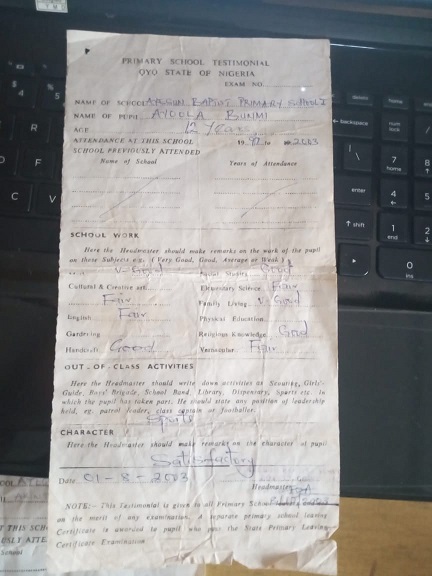 PRIMARY SCHOOL TESTIMONIAL
OYO STATE OF NIGERIA
EXAM NO.
NAME OF SCHOOL BAPTIST PRIMARY SCHOOL I
NAME OF PUPIL AYOOLA BUNMI
AGE 12 Years
ATTENDANCE AT THIS SCHOOL 1997 to 2003
SCHOOL PREVIOUSLY ATTENDED
Name of School Years of Attendance
SCHOOL WORK
Here the Headmaster should make remarks on the work of the pupil
on these Subjects e.g. (Very Good, Good, Average or Weak)
V-Good Social Studies Good
Cultural & Creative art Elementary Science Fair
Fair Family Living V. Good
English Fair Physical Education
Gardening Religious Knowledge Good
Handicraft Good Vernacular Fair
OUT-OF-CLASS ACTIVITIES
Here the Headmaster should write down activities as Scouting, Girls'
Guide, Boys' Brigade, School Band, Library, Dispensary, Sports etc. in
which the pupil has taken part. He should state any position of leadership
held, eg. patrol leader, class captain or footballer.
Sports
CHARACTER
Here the Headmaster should make remarks on the character of pupil
Satisfactory
Date 01-8-2003
Headmaster
NOTE:- This Testimonial is given to all Primary School
on the merit of any examination. A separate primary school leaving
Certificate is awarded to pupil who pass the State Primary Leaving
Certificate Examination.
backspace
home
num lock
enter
shift
end
7
home
4
1
end
0
ins
R
F
D
C
V